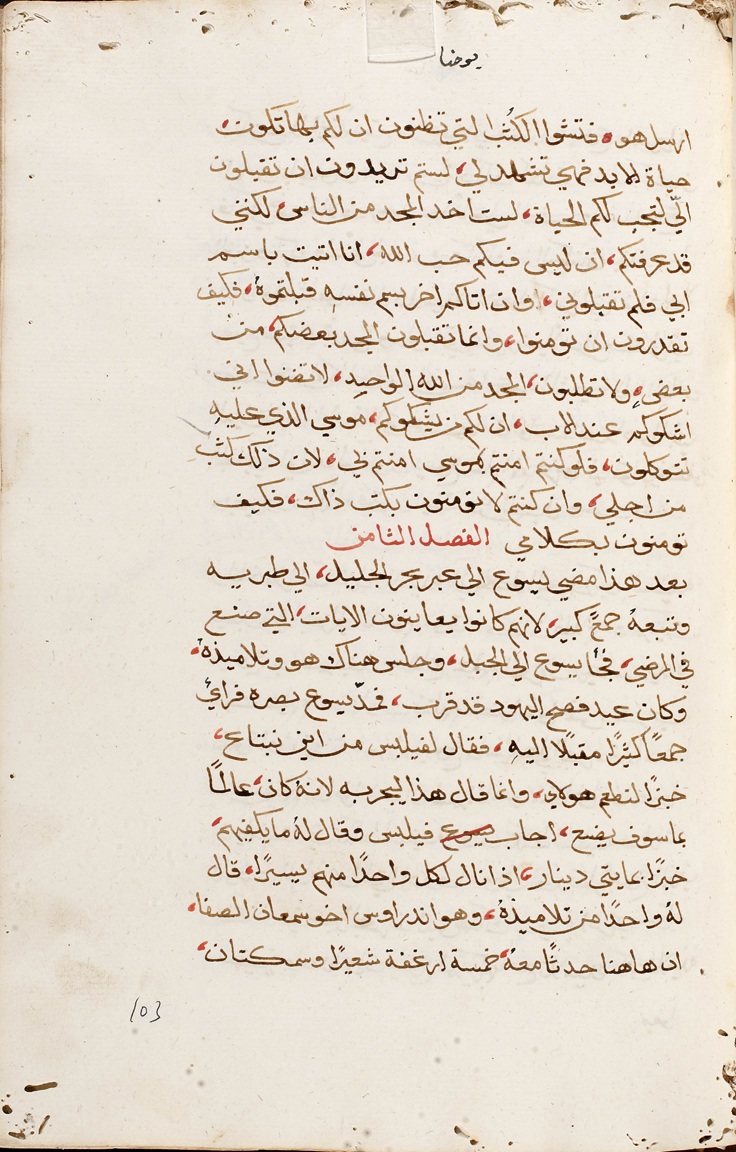 يوحنا
ارسل هو، فتشوا الكتب التي تظنون ان لكم بها تكون
حياة الابد فهي تشهد لي، لستم تريدون ان تقبلون
اليّ لتجب لكم الحياة، لست اخد المجد من الناس، لكنني
قد عرفتكم، ان ليس فيكم حب الله، انا اتيت باسم
ابي فلم تقبلوني، وان اتاكم اخر بسم نفسه قبلتموهُ، فكيف
تقدرون ان تومنوا، وانما تقبلون المجد بعضكم، من
بعض، ولا تطلبون، المجد من الله الواحد، لا تضنوا اني
اشكوكم عند الاب، ان لكم من يشكوكم، موسي الذي عليه
تتوكلون، فلو كنتم امنتم بموسي امنتم لي، لان ذلك كتب
من اجلي، وان كنتم لا تومنون بكتب ذاك، فكيف
تومنون بكلامي الفصل الثامن
بعد هذا مضي يسوع الي عبر بحر الجليل، الي طبريه
وتبعهُ جمعً كبير، لانهم كانوا يعاينون الايات، التي صنع
في المرضي، فجأ يسوع الي الجبل، وجلس هناك هو وتلاميذهُ،
وكان عيد فصح اليهود قد قرب، فمدّ يسوع بصره فراي
جمعًا كثيرًا مقبلًا اليه، فقال لفيلبس من اين نبتاع،
خبزًا لنطعم هولاي، وانما قال هذا ليجربه لانهُ كان، عالمًا
بما سوف يضع، اجاب يسوع فيلبس وقال لهُ ما يكفيهم،
خبزًا بمايتي دينار، اذا نال لكل واحدًا منهم يسيرًا، قال
لهُ واحدًا من تلاميذهُ، وهو اندراوس اخو سمعان الصفا،
ان هاهنا حدثًا معهُ، خمسة ارغفة شعيرًا وسمكتان،
103